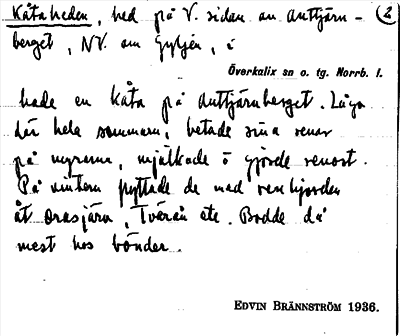 Kåtaheden, hed på V. sidan av Anttjärn- (2
berget, NV. om Gyljen, i
Överkalix sn o. tg. Norrb. l.
hade en kåta på Anttjärnberget. Låga
där hela sommarn, betade sina renar
på myrarna, mjölkade o gjorde renost.
På vintern flyttade de med renhjorden
åt Orasjärv, Tvärån etc. Bodde då
mest hos bönder.
EDVIN BRÄNNSTRÖM 1936.